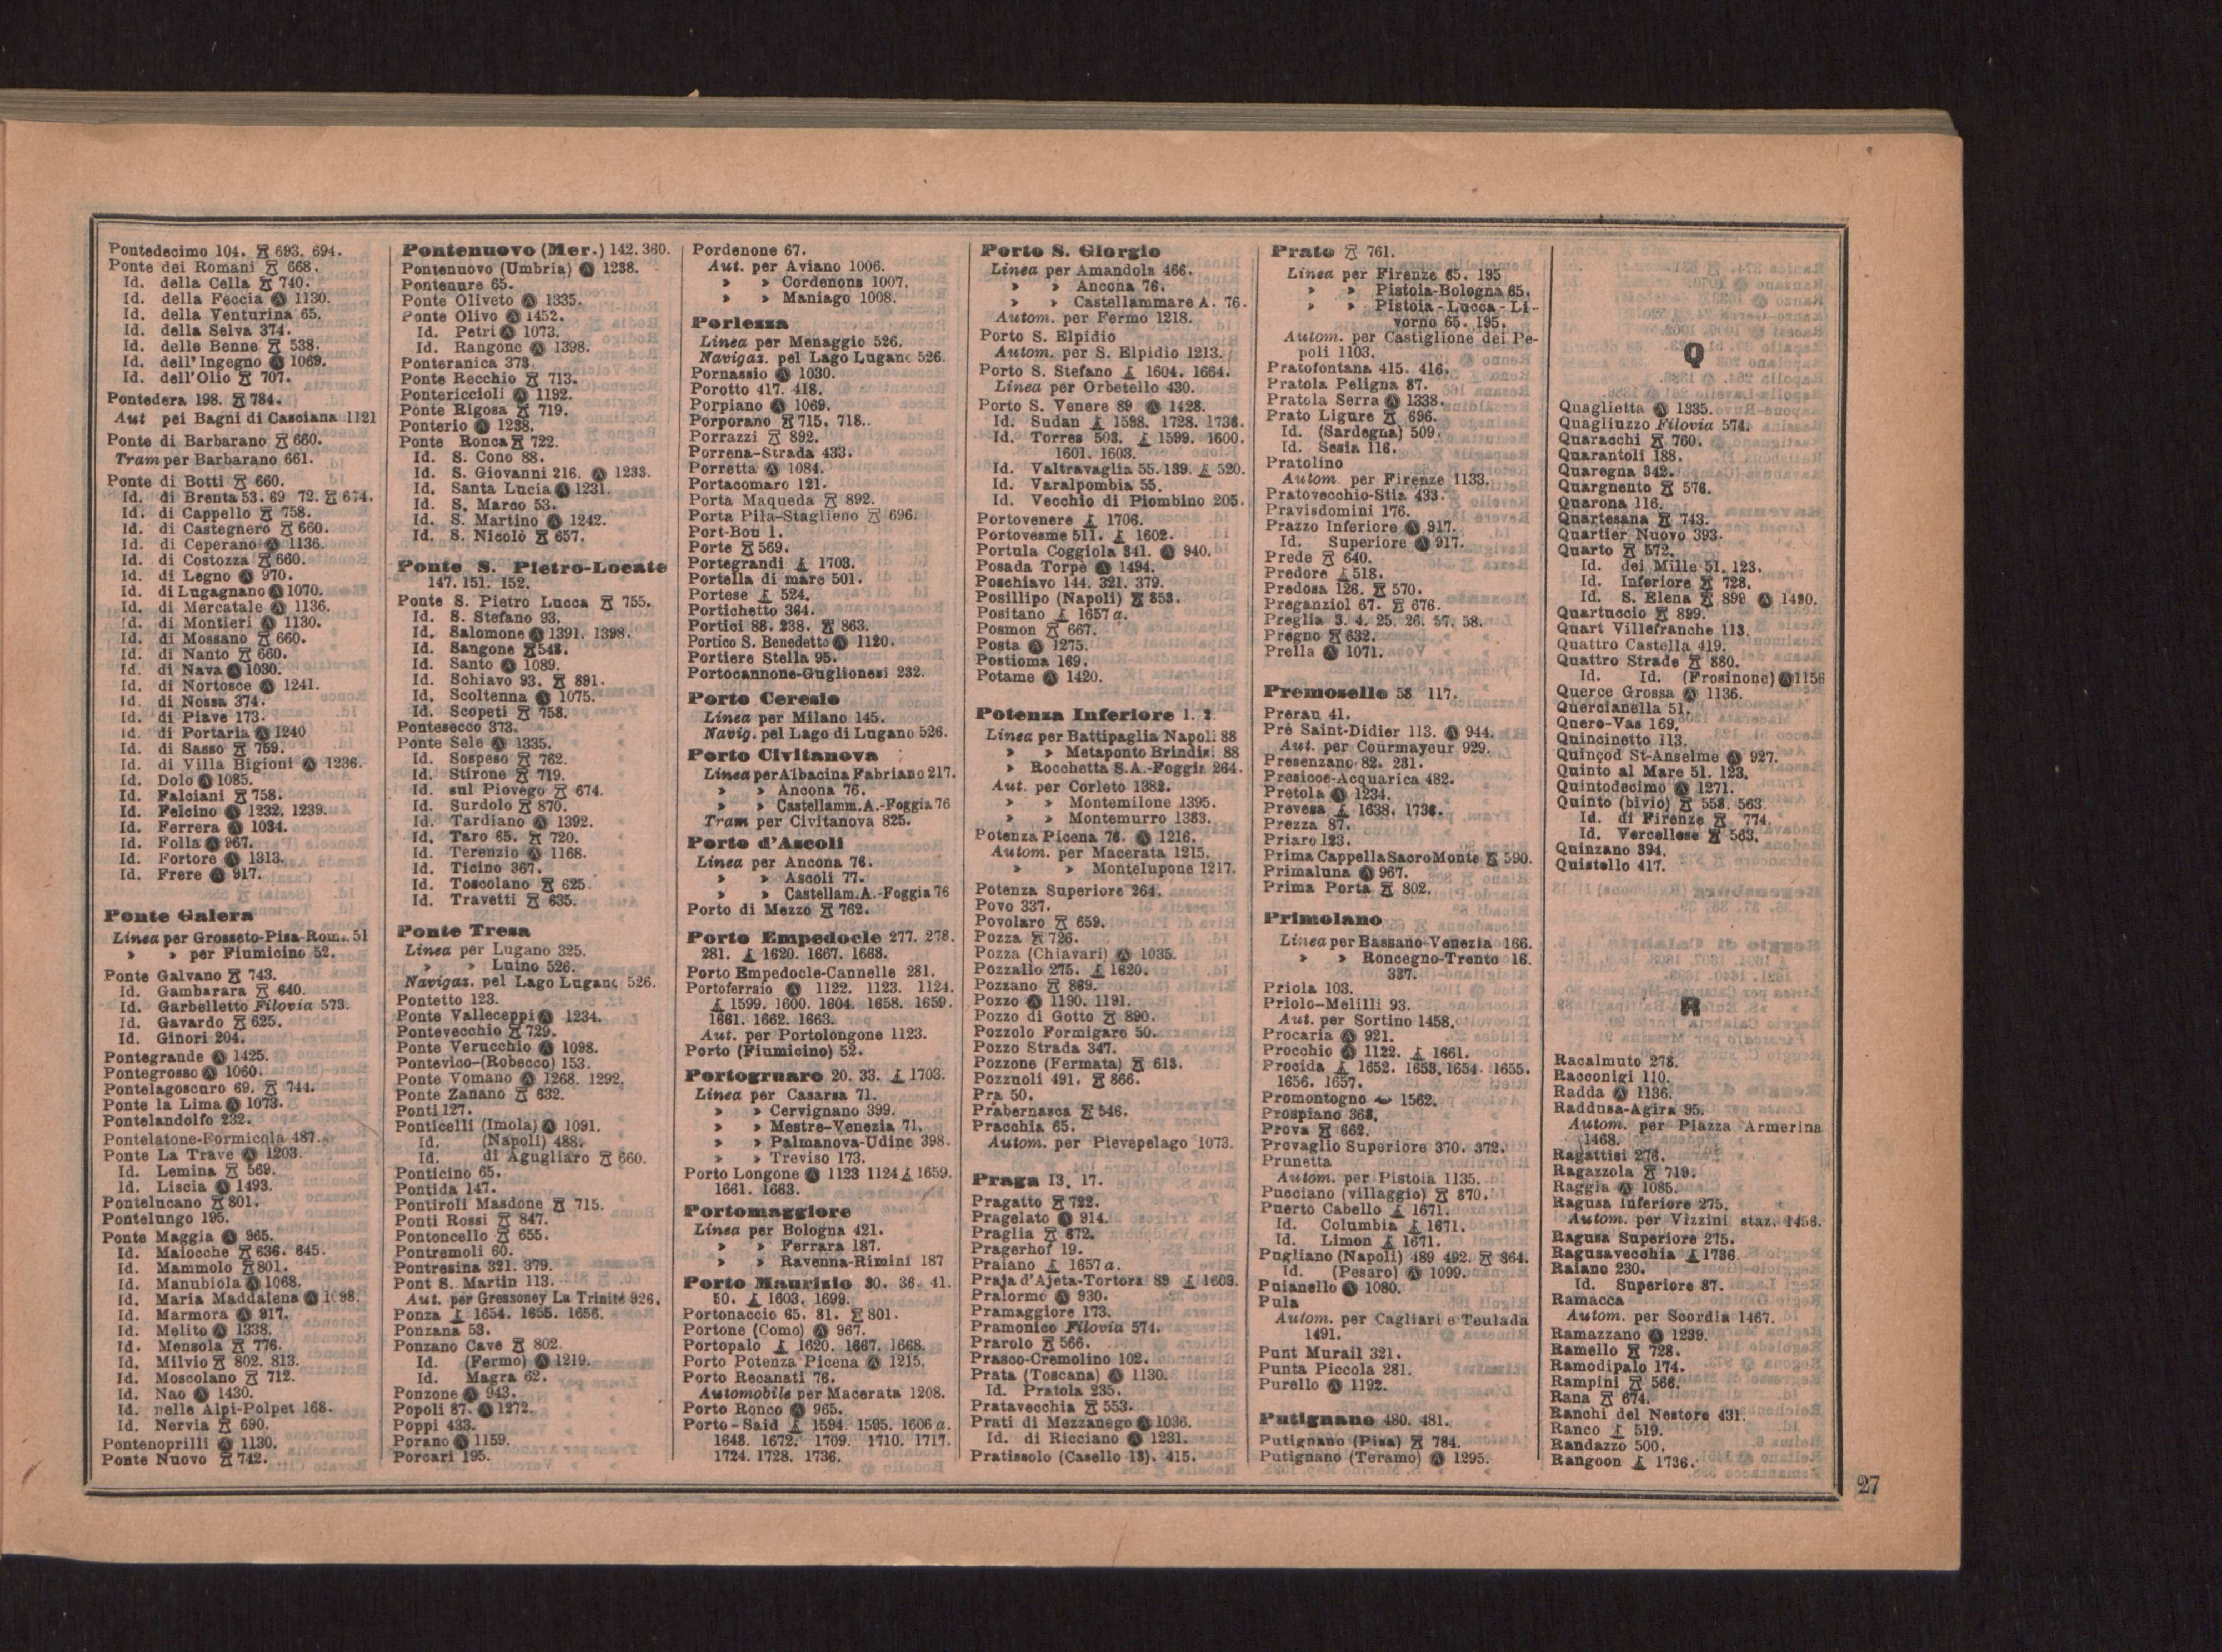 Pontedecimo 104. 693. 694.
Ponte dei Romani 668.
Id. della Cella 740.
Id. della Feccia Ⓐ 1130.
Id. della Venturina 65.
Id. della Selva 374.
Id. delle Benne 538.
Id. dell'Ingegno Ⓐ 1069.
Id. dell'Olio 707.
Pontedera 198. 784.
Aut pei Bagni di Casciana 1121
Ponte di Barbarano 660.
Tram per Barbarano 661.
Ponte di Botti 660.
Id. di Brenta 53. 69 72. 674.
Id. di Cappello 758.
Id. di Castegnero 660.
Id. di Ceperano Ⓐ 1136.
Id. di Costozza 660.
Id. di Legno Ⓐ 970.
Id. di Lugagnano Ⓐ 1070.
Id. di Mercatale Ⓐ 1136.
Id. di Montieri Ⓐ 1130.
Id. di Mossano 660.
Id. di Nanto 660.
Id. di Nava Ⓐ 1030.
Id. di Nortosce Ⓐ 1241.
Id. di Nossa 374.
Id. di Piave 173.
Id. di Portaria Ⓐ 1240
Id. di Sasso 759.
Id. di Villa Bigioni Ⓐ 1236.
Id. Dolo Ⓐ 1085.
Id. Falciani 758.
Id. Felcino Ⓐ 1232. 1239.
Id. Ferrera Ⓐ 1034.
Id. Folla Ⓐ 967.
Id. Fortore Ⓐ 1313.
Id. Frere Ⓐ 917.
Ponte Galera
Linea per Grosseto-Pisa-Rom. 51
» » per Fiumicino 52.
Ponte Galvano 743.
Id. Gambarara 640.
Id. Garbelletto Filovia 573.
Id. Gavardo 625.
Id. Ginori 204.
Pontegrande Ⓐ 1425.
Pontegrosso Ⓐ 1060.
Pontelagoscuro 69. 744.
Ponte la Lima Ⓐ 1073.
Pontelandolfo 232.
Pontelatone-Formicola 487.
Ponte La Trave Ⓐ 1203.
Id. Lemina 569.
Id. Liscia Ⓐ 1493.
Pontelucano 801.
Pontelungo 195.
Ponte Maggia Ⓐ 965.
Id. Maiocche 636. 645.
Id. Mammolo 801.
Id. Manubiola Ⓐ 1068.
Id. Maria Maddalena Ⓐ 1098.
Id. Marmora Ⓐ 917.
Id. Melito Ⓐ 1338.
Id. Mensola 776.
Id. Milvio 802. 813.
Id. Moscolano 712.
Id. Nao Ⓐ 1430.
Id. nelle Alpi-Polpet 168.
Id. Nervia 690.
Pontenoprilli Ⓐ 1130.
Ponte Nuovo 742.
Pontenuovo (Mer.) 142. 360.
Pontenuovo (Umbria) Ⓐ 1238.
Pontenure 65.
Ponte Oliveto Ⓐ 1335.
Ponte Olivo Ⓐ 1452.
Id. Petri Ⓐ 1073.
Id. Rangone Ⓐ 1398.
Ponteranica 373.
Ponte Recchio 713.
Pontericcioli Ⓐ 1192.
Ponte Rigosa 719.
Ponterio Ⓐ 1238.
Ponte Ronca 722.
Id. S. Cono 88.
Id. S. Giovanni 216. Ⓐ 1233.
Id. Santa Lucia Ⓐ 1231.
Id. S. Marco 53.
Id. S. Martino Ⓐ 1242.
Id. S. Nicolò 657.
Ponte S. Pietro-Locate
147. 151. 152.
Ponte S. Pietro Lucca 755.
Id. S. Stefano 93.
Id. Salomone Ⓐ 1391. 1398.
Id. Sangone 548.
Id. Santo Ⓐ 1089.
Id. Schiavo 93. 891.
Id. Scoltenna Ⓐ 1075.
Id. Scopeti 758.
Pontesecco 373.
Ponte Sele Ⓐ 1335.
Id. Sospeso 762.
Id. Stirone 719.
Id. sul Piovego 674.
Id. Surdolo 870.
Id. Tardiano Ⓐ 1392.
Id. Taro 65. 720.
Id. Terenzio Ⓐ 1168.
Id. Ticino 367.
Id. Toscolano 625.
Id. Travetti 635.
Ponte Tresa
Linea per Lugano 325.
» » Luino 526.
Navigaz. pel Lago Lugano 526.
Pontetto 123.
Ponte Valleceppi Ⓐ 1234.
Pontevecchio 729.
Ponte Verucchio Ⓐ 1098.
Pontevico-(Robecco) 153.
Ponte Vomano Ⓐ 1268. 1292.
Ponte Zanano 632.
Ponti 127.
Ponticelli (Imola) Ⓐ 1091.
Id. (Napoli) 488.
Id. di Agugliaro 660.
Ponticino 65.
Pontida 147.
Pontiroli Masdone 715.
Ponti Rossi 847.
Pontoncello 655.
Pontremoli 60.
Pontresina 321. 379.
Pont S. Martin 113.
Aut. per Gressoney La Trinité 926.
Ponza 1654. 1655. 1656.
Ponzana 53.
Ponzano Cave 802.
Id. (Fermo) Ⓐ 1219.
Id. Magra 62.
Ponzone Ⓐ 943.
Popoli 87. Ⓐ 1272.
Poppi 433.
Porano Ⓐ 1159.
Porcari 195.
Pordenone 67.
Aut. per Aviano 1006.
» » Cordenons 1007.
» » Maniago 1008.
Porlezza
Linea per Menaggio 526.
Navigaz. pel Lago Lugano 526.
Pornassio Ⓐ 1030.
Porotto 417. 418.
Porpiano Ⓐ 1069.
Porporano 715. 718.
Porrazzi 892.
Porrena-Strada 433.
Porretta Ⓐ 1084.
Portacomaro 121.
Porta Maqueda 892.
Porta Pila-Staglieno 696.
Port-Bou 1.
Porte 569.
Portegrandi 1703.
Portella di mare 501.
Portese 524.
Portichetto 364.
Portici 88. 238. 863.
Portico S. Benedetto Ⓐ 1120.
Portiere Stella 95.
Portocannone-Guglionesi 232.
Porto Ceresio
Linea per Milano 145.
Navig. pel Lago di Lugano 526.
Porto Civitanova
Linea per Albacina Fabriano 217.
» » Ancona 76.
» » Castellamm. A.-Foggia 76
Tram per Civitanova 825.
Porto d'Ascoli
Linea per Ancona 76.
» » Ascoli 77.
» » Castellam. A.-Foggia 76
Porto di Mezzo 762.
Porto Empedocle 277. 278.
281. 1620. 1667. 1668.
Porto Empedocle-Cannelle 281.
Portoferraio Ⓐ 1122. 1123. 1124.
1599. 1600. 1604. 1658. 1659.
1661. 1662. 1663.
Aut. per Portolongone 1123.
Porto (Fiumicino) 52.
Portogruaro 20. 33. 1703.
Linea per Casarsa 71.
» » Cervignano 399.
» » Mestre-Venezia 71.
» » Palmanova-Udine 398.
» » Treviso 173.
Porto Longone Ⓐ 1123 1124 1659.
1661. 1663.
Portomaggiore
Linea per Bologna 421.
» » Ferrara 187.
» » Ravenna-Rimini 187
Porto Maurizio 30. 36. 41.
50. 1603. 1699.
Portonaccio 65. 81. 801.
Portone (Como) Ⓐ 967.
Portopalo 1620. 1667. 1668.
Porto Potenza Picena Ⓐ 1215.
Porto Recanati 76.
Automobile per Macerata 1208.
Porto Ronco Ⓐ 965.
Porto-Said 1594. 1595. 1606 a.
1648. 1672. 1709. 1710. 1717.
1724. 1728. 1736.
Porto S. Giorgio
Linea per Amandola 466.
» » Ancona 76.
» » Castellammare A. 76.
Autom. per Fermo 1218.
Porto S. Elpidio
Autom. per S. Elpidio 1213.
Porto S. Stefano 1604. 1664.
Linea per Orbetello 430.
Porto S. Venere 89 Ⓐ 1428.
Id. Sudan 1598. 1728. 1736.
Id. Torres 503. 1599. 1600.
1601. 1603.
Id. Valtravaglia 55. 139. 520.
Id. Varalpombia 55.
Id. Vecchio di Piombino 205.
Portovenere 1706.
Portovesme 511. 1602.
Portula Coggiola 341. Ⓐ 940.
Posada Torpè Ⓐ 1494.
Poschiavo 144. 321. 379.
Posillipo (Napoli) 853.
Positano 1657 a.
Posmon 667.
Posta Ⓐ 1275.
Postioma 169.
Potame Ⓐ 1420.
Potenza Inferiore 1. 2.
Linea per Battipaglia Napoli 88
» » Metaponto Brindisi 88
» Rocchetta S.A.-Foggia 264.
Aut. per Corleto 1382.
» » Montemilone 1395.
» » Montemurro 1383.
Potenza Picena 76. Ⓐ 1216.
Autom. per Macerata 1215.
» » Montelupone 1217.
Potenza Superiore 264.
Povo 337.
Povolaro 659.
Pozza 726.
Pozza (Chiavari) Ⓐ 1035.
Pozzallo 275. 1620.
Pozzano 869.
Pozzo Ⓐ 1190. 1191.
Pozzo di Gotto 890.
Pozzolo Formigaro 50.
Pozzo Strada 347.
Pozzone (Fermata) 613.
Pozzuoli 491. 866.
Pra 50.
Prabernasca 546.
Pracchia 65.
Autom. per Pievepelago 1073.
Praga 13. 17.
Pragatto 722.
Pragelato Ⓐ 914.
Praglia 672.
Pragerhof 19.
Praiano 1657 a.
Praja d'Ajeta-Tortora 89 1603.
Pralormo Ⓐ 930.
Pramaggiore 173.
Pramonico Filovia 574.
Prarolo 566.
Prasco-Cremolino 102.
Prata (Toscana) Ⓐ 1130.
Id. Pratola 235.
Pratavecchia 553.
Prati di Mezzanego Ⓐ 1036.
Id. di Ricciano Ⓐ 1231.
Pratissolo (Casello 13). 415.
Prato 761.
Linea per Firenze 65. 195
» » Pistoia-Bologna 65.
» » Pistoia-Lucca-Li-
vorno 65. 195.
Autom. per Castiglione dei Pe-
poli 1103.
Pratofontana 415. 416.
Pratola Peligna 87.
Pratola Serra Ⓐ 1338.
Prato Ligure 696.
Id. (Sardegna) 509.
Id. Sesia 116.
Pratolino
Autom. per Firenze 1133.
Pratovecchio-Stia 433.
Pravisdomini 176.
Prazzo Inferiore Ⓐ 917.
Id. Superiore Ⓐ 917.
Prede 640.
Predore 518.
Predosa 126. 570.
Preganziol 67. 676.
Preglia 3. 4. 25. 26. 57. 58.
Pregno 632.
Prella Ⓐ 1071.
Premosello 58 117.
Prerau 41.
Pré Saint-Didier 113. Ⓐ 944.
Aut. per Courmayeur 929.
Presenzano 82. 231.
Presicce-Acquarica 482.
Pretola Ⓐ 1234.
Prevesa 1638. 1736.
Prezza 87.
Priaro 123.
Prima Cappella Sacro Monte 590.
Primaluna Ⓐ 967.
Prima Porta 802.
Primolano
Linea per Bassano-Venezia 166.
» » Roncegno-Trento 16.
337.
Priola 103.
Priolo-Melilli 93.
Aut. per Sortino 1458.
Procaria Ⓐ 921.
Procchio Ⓐ 1122. 1661.
Procida 1652. 1653. 1654. 1655.
1656. 1657.
Promontogno 1562.
Prospiano 368.
Prova 662.
Provaglio Superiore 370. 372.
Prunetta
Autom. per Pistoia 1135.
Pucciano (villaggio) 870.
Puerto Cabello 1671.
Id. Columbia 1671.
Id. Limon 1671.
Pugliano (Napoli) 489 492. 864.
Id. (Pesaro) Ⓐ 1099.
Puianello Ⓐ 1080.
Pula
Autom. per Cagliari e Teulada
1491.
Punt Murail 321.
Punta Piccola 281.
Purello Ⓐ 1192.
Putignano 480. 481.
Putignano (Pisa) 784.
Putignano (Teramo) Ⓐ 1295.
Q
Quaglietta Ⓐ 1335.
Quagliuzzo Filovia 574.
Quaracchi 760.
Quarantoli 188.
Quaregna 342.
Quargnento 576.
Quarona 116.
Quartesana 743.
Quartier Nuovo 393.
Quarto 572.
Id. dei Mille 51. 123.
Id. Inferiore 728.
Id. S. Elena 899 Ⓐ 1490.
Quartuccio 899.
Quart Villefranche 113.
Quattro Castella 419.
Quattro Strade 880.
Id. Id. (Frosinone) Ⓐ 1156
Querce Grossa Ⓐ 1136.
Quercianella 51.
Quero-Vas 169.
Quincinetto 113.
Quinçod St-Anselme Ⓐ 927.
Quinto al Mare 51. 123.
Quintodecimo Ⓐ 1271.
Quinto (bivio) 558. 563.
Id. di Firenze 774.
Id. Vercellese 563.
Quinzano 394.
Quistello 417.
R
Racalmuto 278.
Racconigi 110.
Radda Ⓐ 1136.
Raddusa-Agira 95.
Autom. per Piazza Armerina
1468.
Ragattisi 276.
Ragazzola 719.
Raggia Ⓐ 1085.
Ragusa inferiore 275.
Autom. per Vizzini staz. 1456.
Ragusa Superiore 275.
Ragusavecchia 1736.
Raiano 230.
Id. Superiore 87.
Ramacca
Autom. per Scordia 1467.
Ramazzano Ⓐ 1239.
Ramello 728.
Ramodipalo 174.
Rampini 566.
Rana 674.
Ranchi del Nestore 431.
Ranco 519.
Randazzo 500.
Rangoon 1736.
27